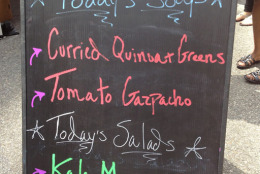 Today's Soups
Curried Quinoa + Greens
Tomato Gazpacho
Today's Salads